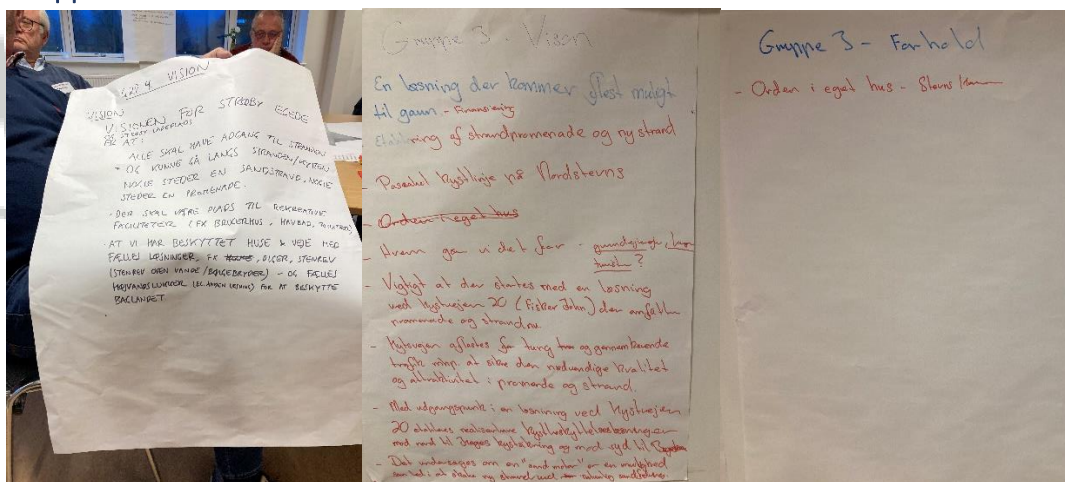 VISION
VISION
VISIONEN FOR STRØBY EGEDE
ER AT:
ALLE SKAL HAVE ADGANG TIL STRANDEN
- OG KUNNE GÅ LANGS STRANDEN/KYSTEN.
NOGLE STEDER EN SANDSTRAND, NOGLE
STEDER EN PROMENADE.
- DER SKAL VÆRE PLADS TIL REKREATIVE
FACILITETER (FX BRUGERHUS, HAVBAD,
- AT VI HAR BESKYTTET HUSE & VEJE MED
FÆLLES LØSNINGER, FX DIGER, STENREV
(STENREV OVEN VANDE/BØLGEBRYDER) - OG FÆLLES
HØJVANDSLUKKER FOR AT BESKYTTE
BAGLANDET.
Gruppe 3 - Vison
En løsning der kommer flest muligt
til gavn. - Finansiering
Etablering af strandpromenade og ny strand
- Passalut Kystlinje på Nordstevns
- Orden i eget hus
- Hvem gør vi det for -
- Vigtigt at der startes med en løsning
ved Kystvejen 20 (Fisker John) der omfatter
promenade og strand
- Kystvejen aflastes for tung og gennemkørende
trafik mhp. at sikre den nødvendige kvalitet
og attraktivitet i promenade og strand.
- Med udgangspunkt i en løsning ved Kystvejen
20 etableres
mod nord til og mod syd til
- Det undersøges om en "sand motor" er en mulighed
Gruppe 3 - Forhold
- Orden i eget hus - Stevns